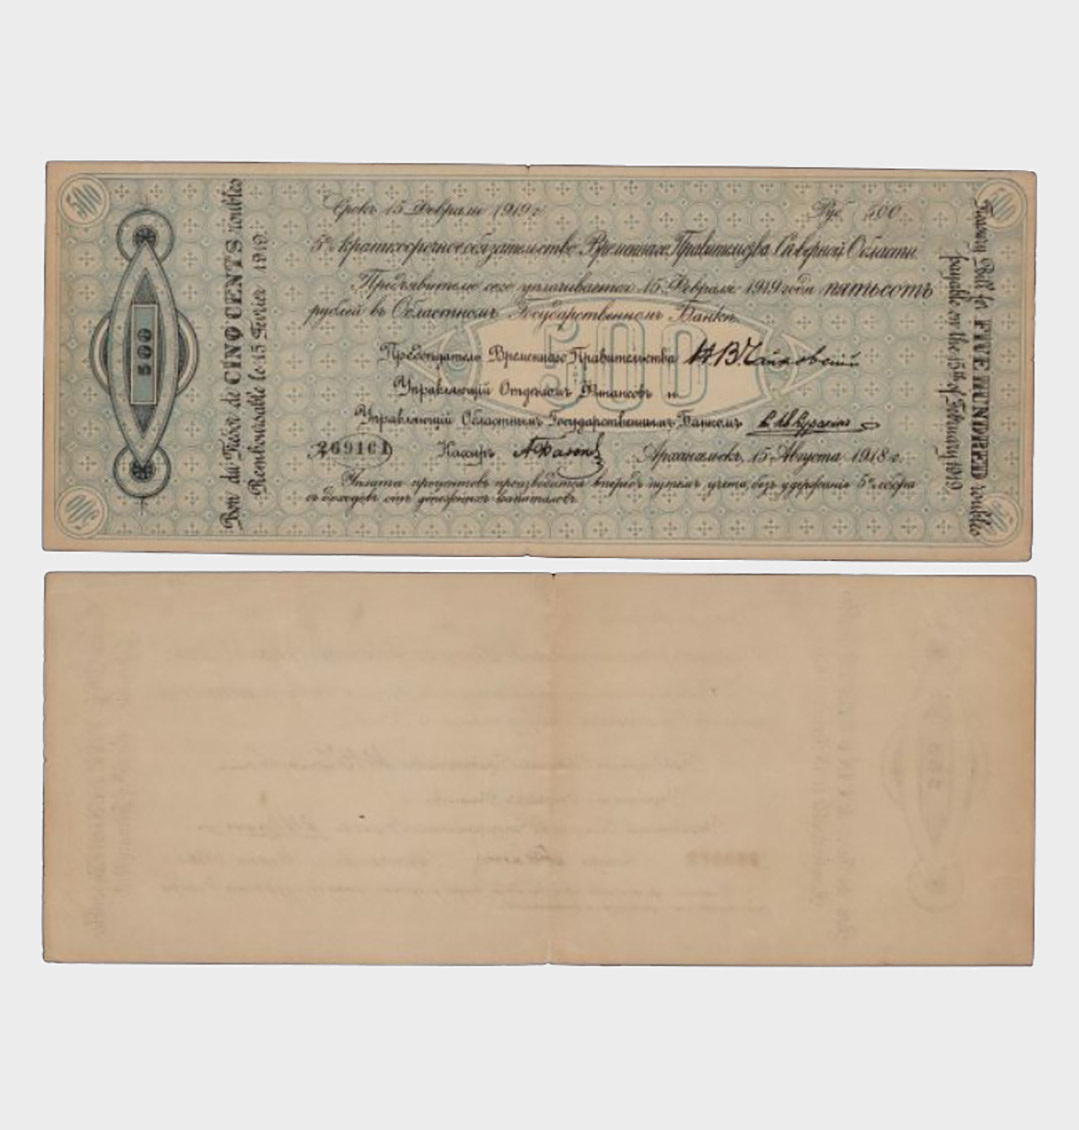 500
Срокъ 15 Февраля 1919 г.
Руб. 500
5% краткосрочное обязательство Временнаго Правительства Сѣверной Области
Предъявителю сего уплачивается 15 Февраля 1919 года пятьсотъ
рублей въ Областномъ Государственномъ Банкѣ.
500
Предсѣдатель Временнаго Правительства Н.В. Чайковскій
Управляющій Отдѣломъ Финансовъ и
Управляющій Областнымъ Государственнымъ Банкомъ
269101
Кассиръ
Архангельскъ, 15 Августа 1918 г.
Уплата процентовъ производится впередъ путемъ учета, безъ удержанія 5% сбора
съ доходовъ отъ денежныхъ капиталовъ.
500
500
Bon du Trésor de CINQ CENTS roubles
Remboursable le 15 Février 1919.
Treasury Bill for FIVE HUNDRED roubles
payable on the 15th of February 1919.
500
500